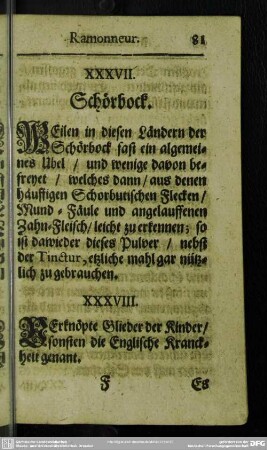 Ramonneur. 81
XXXVII.
Schörbock.
WEilen in diesen Ländern der
Schörbock fast ein algemei-
nes Ubel / und wenige davon be-
freyet / welches dann / aus denen
häuffigen Schorbutischen Flecken /
Mund-Fäule und angelauffenen
Zahn-Fleisch / leicht zu erkennen; so
ist dawieder dieses Pulver / nebst
der Tinctur, etzliche mahl gar nütz-
lich zu gebrauchen.
XXXVIII.
VErknöpte Glieder der Kinder /
sonsten die Englische Kranck-
heit genant.
F Es